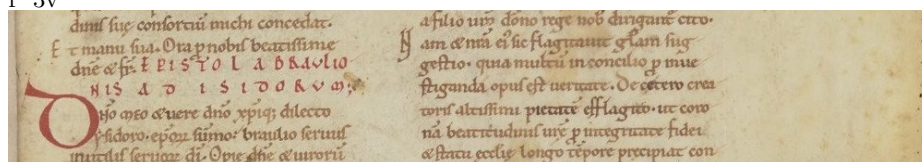 f 5v
diuis suę consortiũ michi concedat.
Et manu sua. Ora ꝓ nobis beatissime
dñe & fr̃. EPISTOLA BRAULIO
NIS AD ISIDORUM;
Dño meo & uere dño xp̃iq; dilecto
ysidoro. ep̃oꝝ sũmo. braulio seruus
inutilis seruoꝝ di. O pie dñe & uiroꝝũ
a filio ur̃o dono rege nob dirigant̃ cito.
Nam & nr̃a ei sic flagitauit gl̃am sug
gestio. quia multũ in concilio ꝓ inue
stiganda opus est ueritate. De cetero crea
toris altissimi pietatẽ efflagito. ut coro
nã beatitudinis ur̃ę ꝓ integritate fidei
& statu ecclię longo tẽpore precipiat con